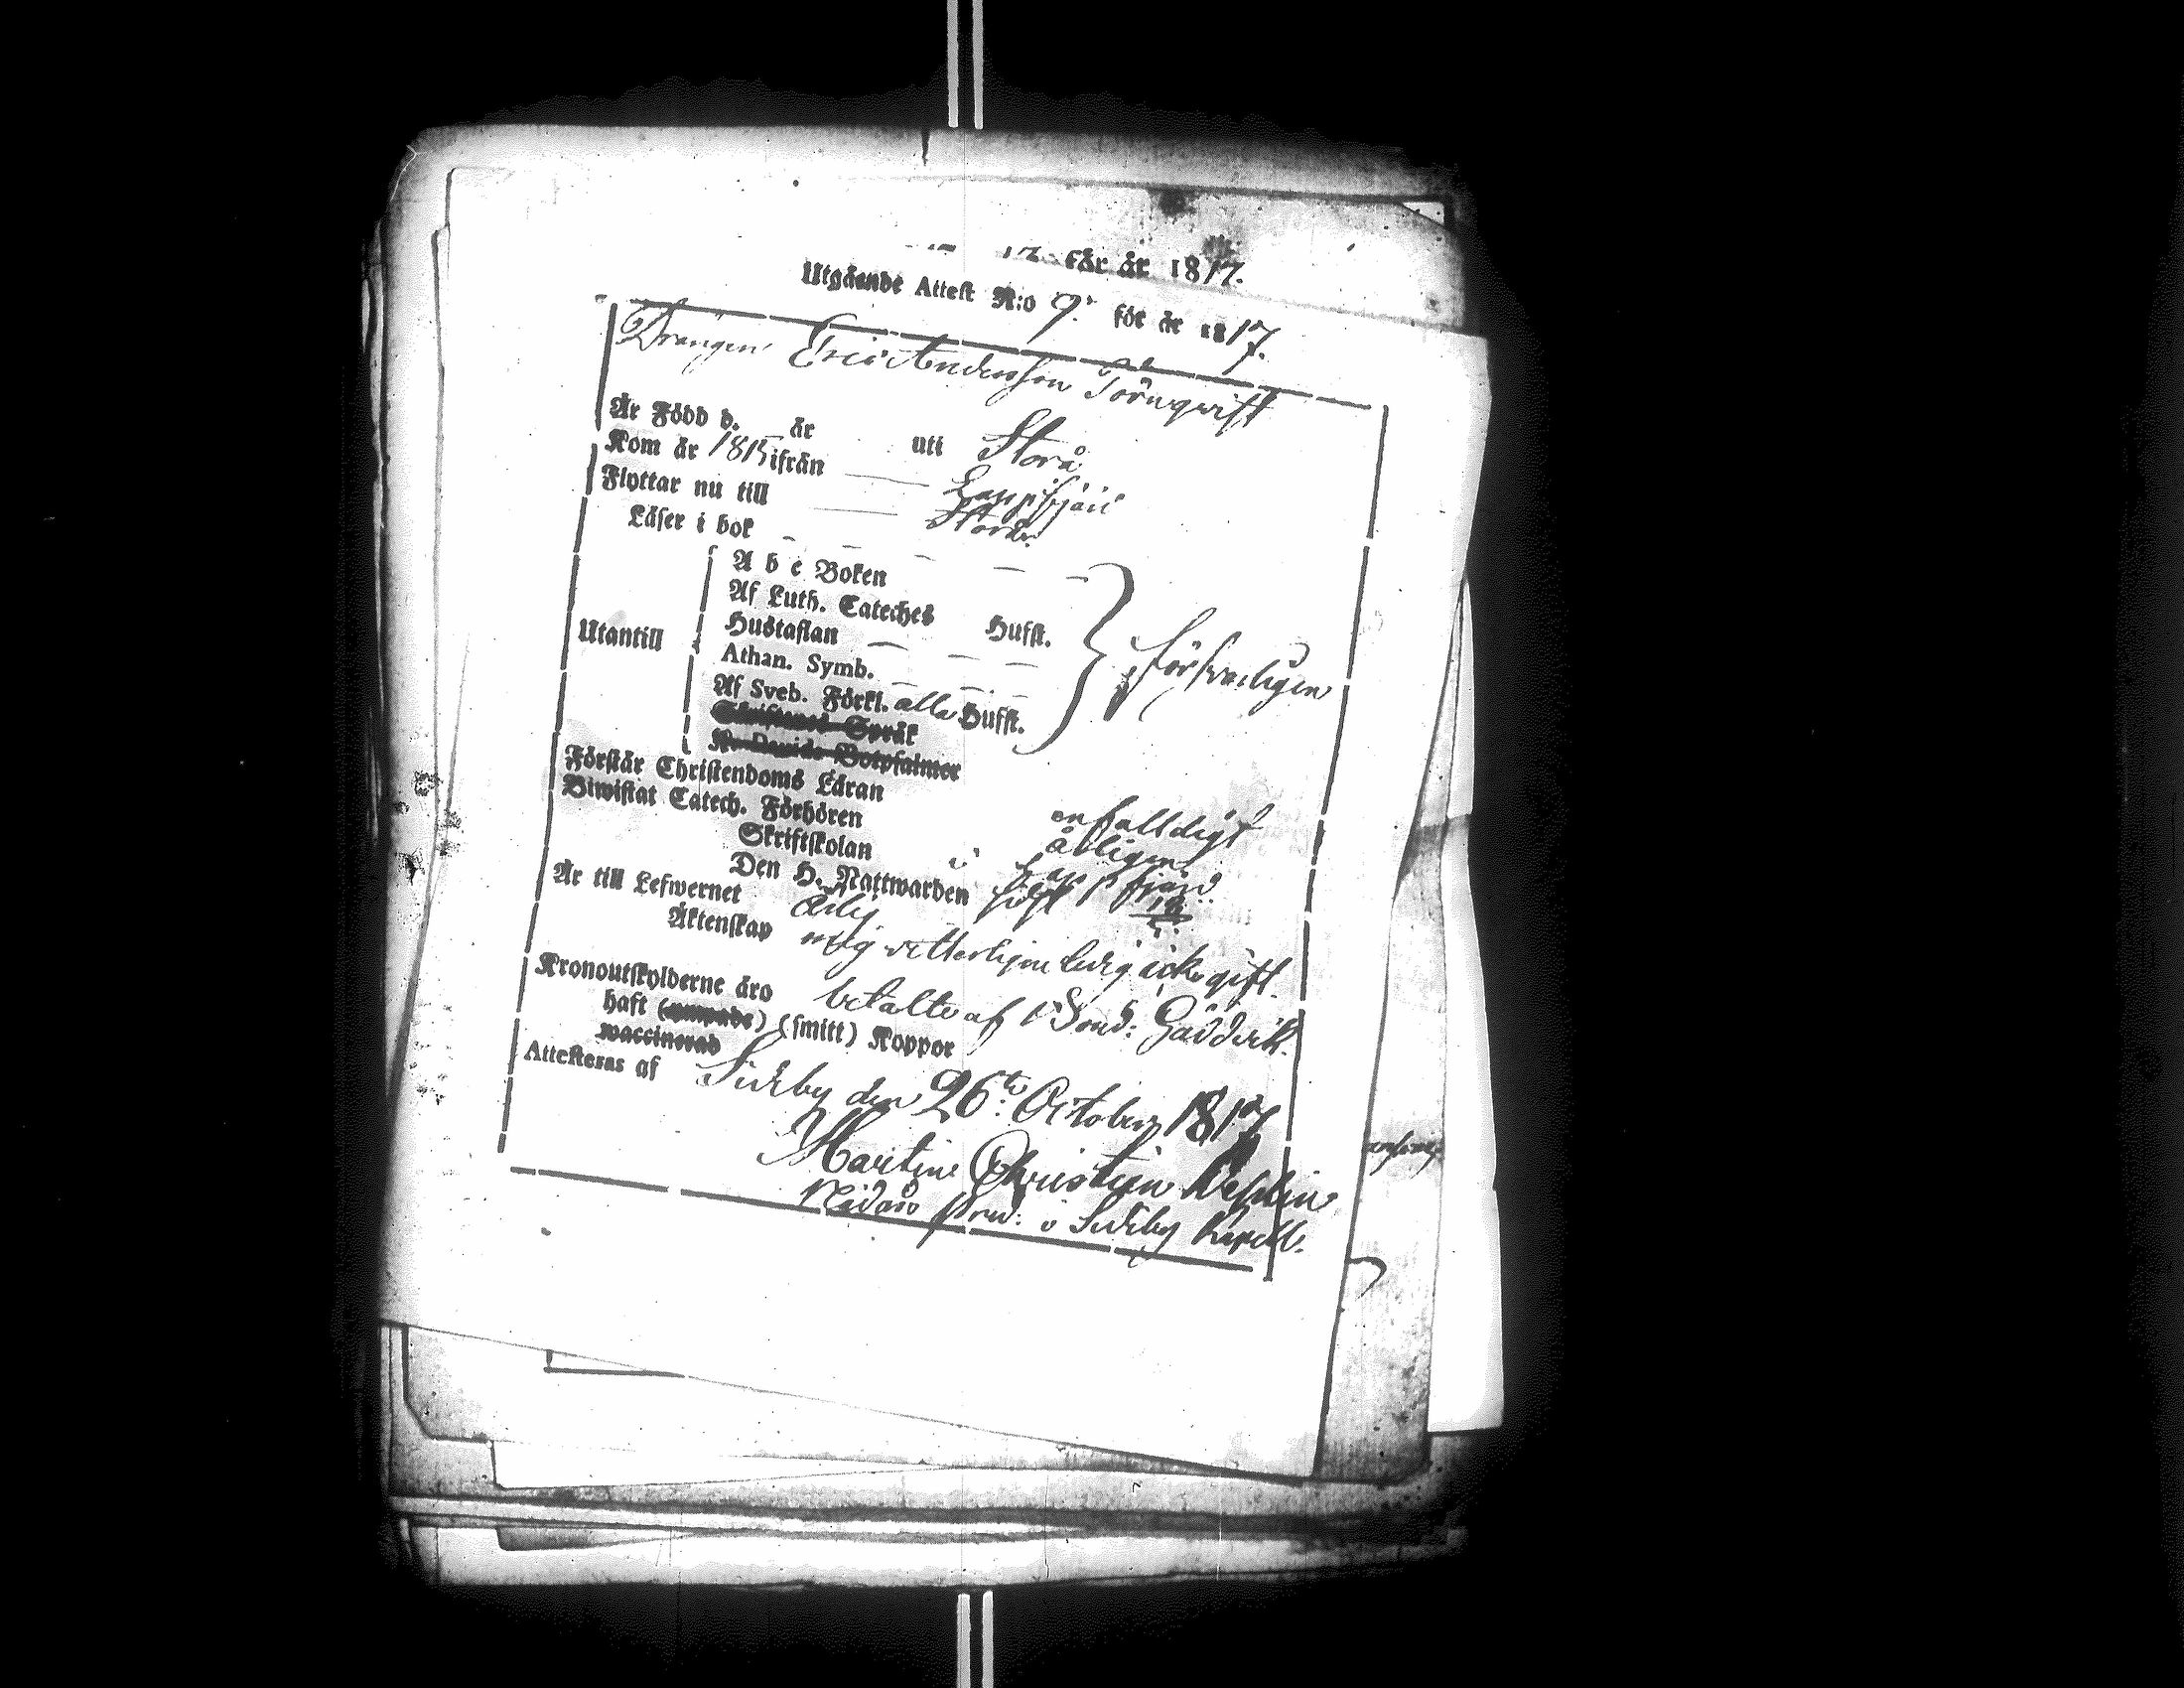 12 för år 1817.
Utgående Attest N:o 9. för år 1817.
Drängen Eric Andersson Törnqvist
Är Född d. år uti Storå
Kom år 1815 ifrån Lappfjärd
Flyttar nu till Storå
Läser i bok
A b c Boken
Af Luth. Cateches Hufst.
Hustaflan
Utantill
Athan. Symb.
Af Sveb. Förkl. alla Hufst.
försvarligen
Skriftenes Språk
K. Davids Botpsalmer
Förstår Christendoms Läran enfalldigt
Biwistat Catech. Förhören årligen
Skriftskolan i Lappfjärd
Den H. Nattwarden sidst
Är till Lefwernet ärlig
Äktenskap mig vetterligen ledig icke gift.
Kronoutskylderne äro betalte af
haft (ympade) (smitt) Koppor
waccinerad
Attesteras af Sideby den 26te October 1817
Martin Christian
i Sideby Kapell.